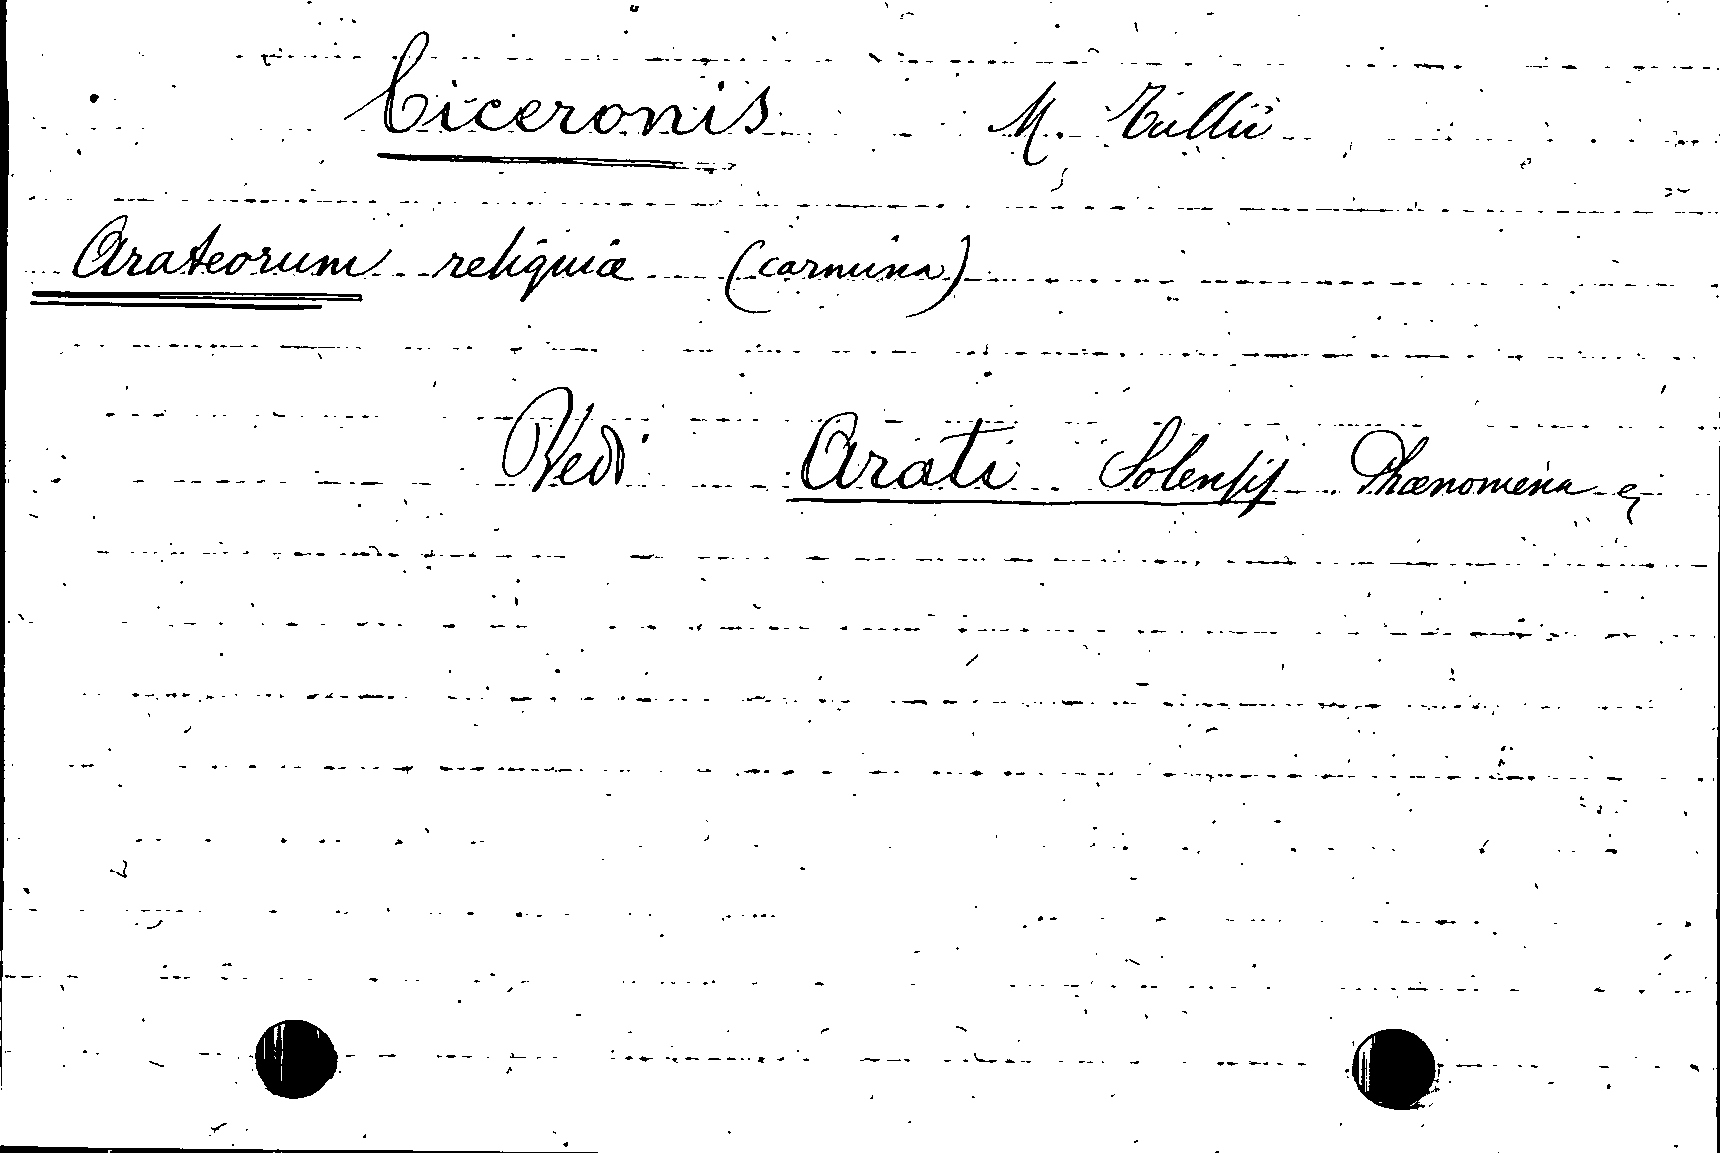 Ciceronis M. Tullii
Arateorum reliquiæ (carmina)
Vedi Arati Solensis Phænomena &